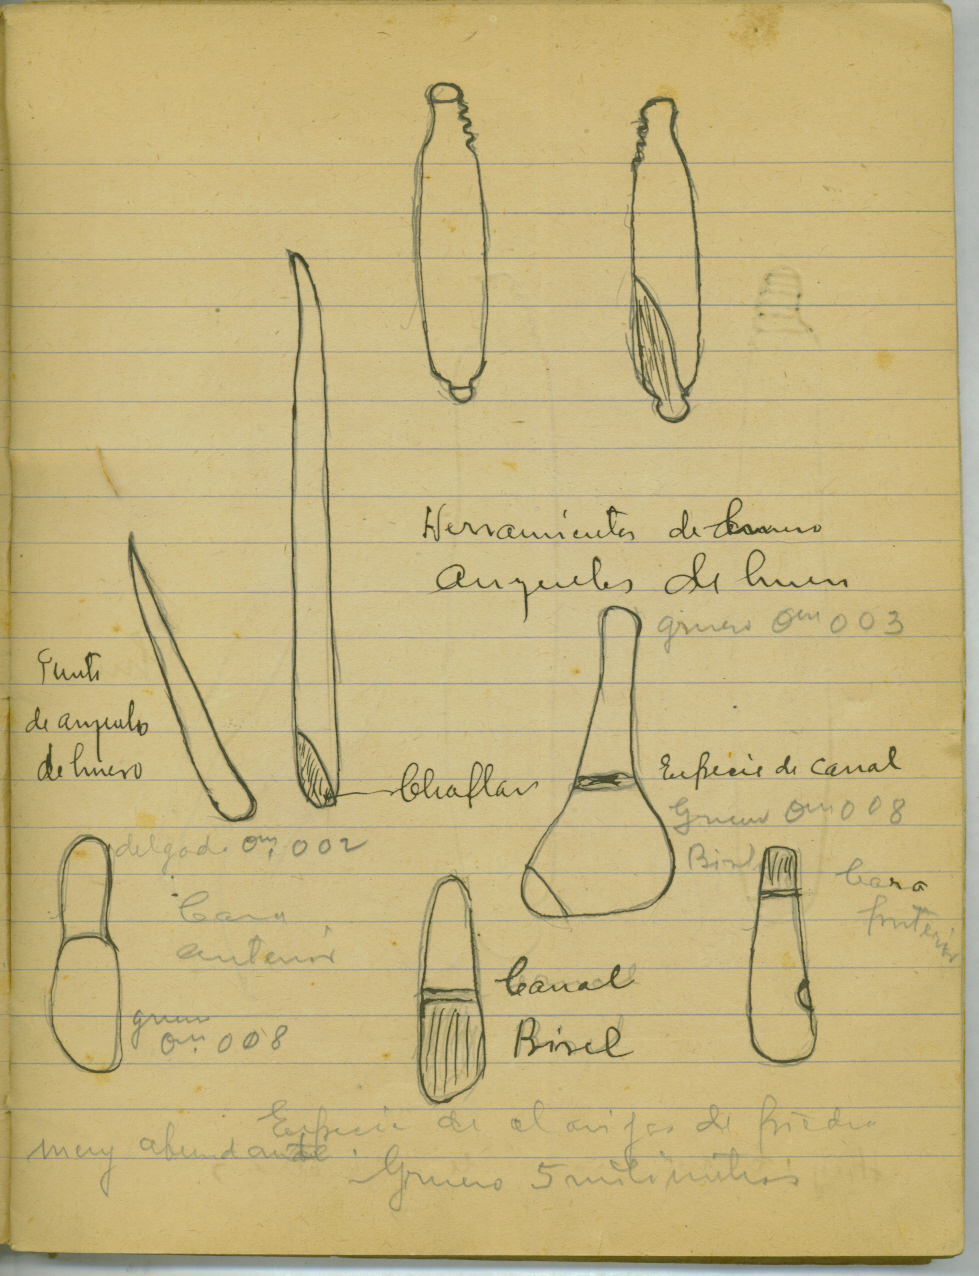 Herramientas de hueso
Anzuelos de hueso
grueso 0m 003
Punta
de anzuelo
de hueso
Chaflan
Especie de canal
Grueso 0m 008
Bisel
Cara
delgado 0m. 002
Cara
anterior
Canal
Bisel
grueso
0m. 008
Especie de clavijas de piedra
muy abundante.
Grueso 5 milimetros